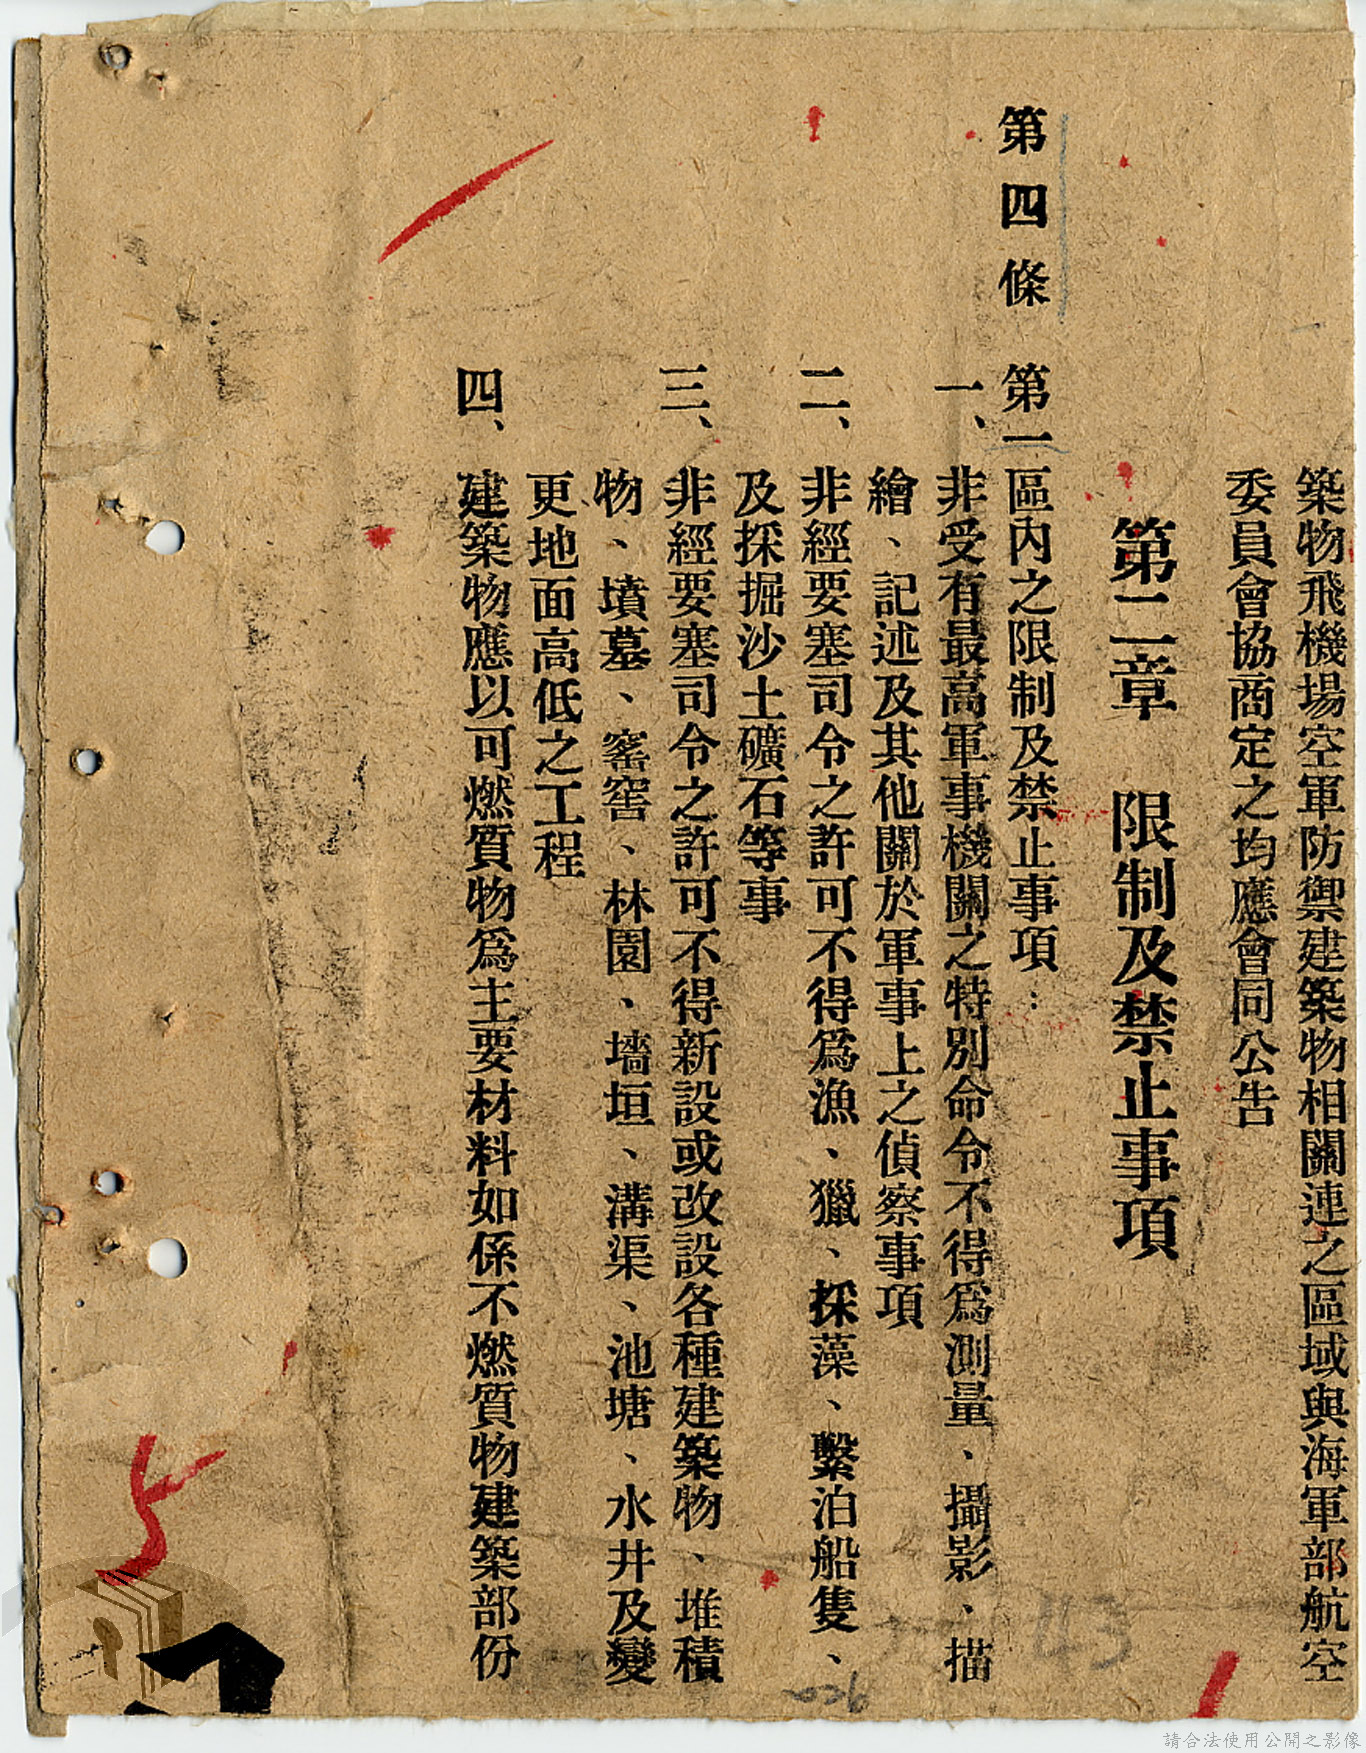 築物飛機場空軍防禦建築物相關連之區域與海軍部航空
委員會協商定之均應會同公告
第二章　限制及禁止事項
第四條　第一區內之限制及禁止事項：
一、非受有最高軍事機關之特別命令不得爲測量、攝影、描
繪、記述及其他關於軍事上之偵察事項
二、非經要塞司令之許可不得爲漁、獵、採藻、繫泊船隻、
及採掘沙土礦石等事
三、非經要塞司令之許可不得新設或改設各種建築物、堆積
物、墳墓、窰窖、林園、墻垣、溝渠、池塘、水井及變
更地面高低之工程
四、建築物應以可燃質物爲主要材料如係不燃質物建築部份
43
請合法使用公開之影像